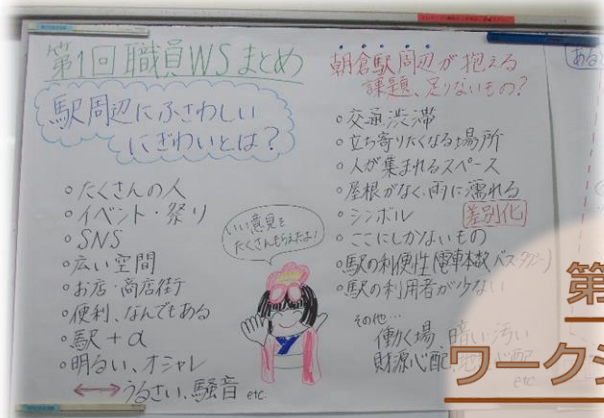 第1回 職員WSまとめ
駅周辺にふさわしい
にぎわいとは?
○たくさんの人
○イベント・祭り
○SNS
○広い空間
○お店・商店街
○便利、なんでもある
○駅+α
○明るい、オシャレ
↔うるさい、騒音 etc.
いい意見を
たくさんもらえたよ!
朝倉駅周辺が抱える
課題、足りないもの?
○交通渋滞
○立ち寄りたくなる場所
○人が集まれるスペース
○屋根がなく、雨に濡れる
○シンボル 差別化
○ここにしかないもの
○駅の利便性(電車本数、バス、タクシー)
○駅の利用者が少ない
その他…
働く場、暗い、汚い
財源心配、
etc.
ある
第
ワークシ